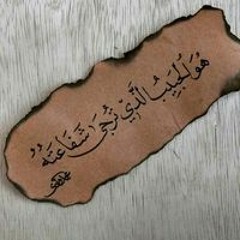 هُوَ الْحَبِيبُ الَّذِي تُرْجَى شَفَاعَتُهُ